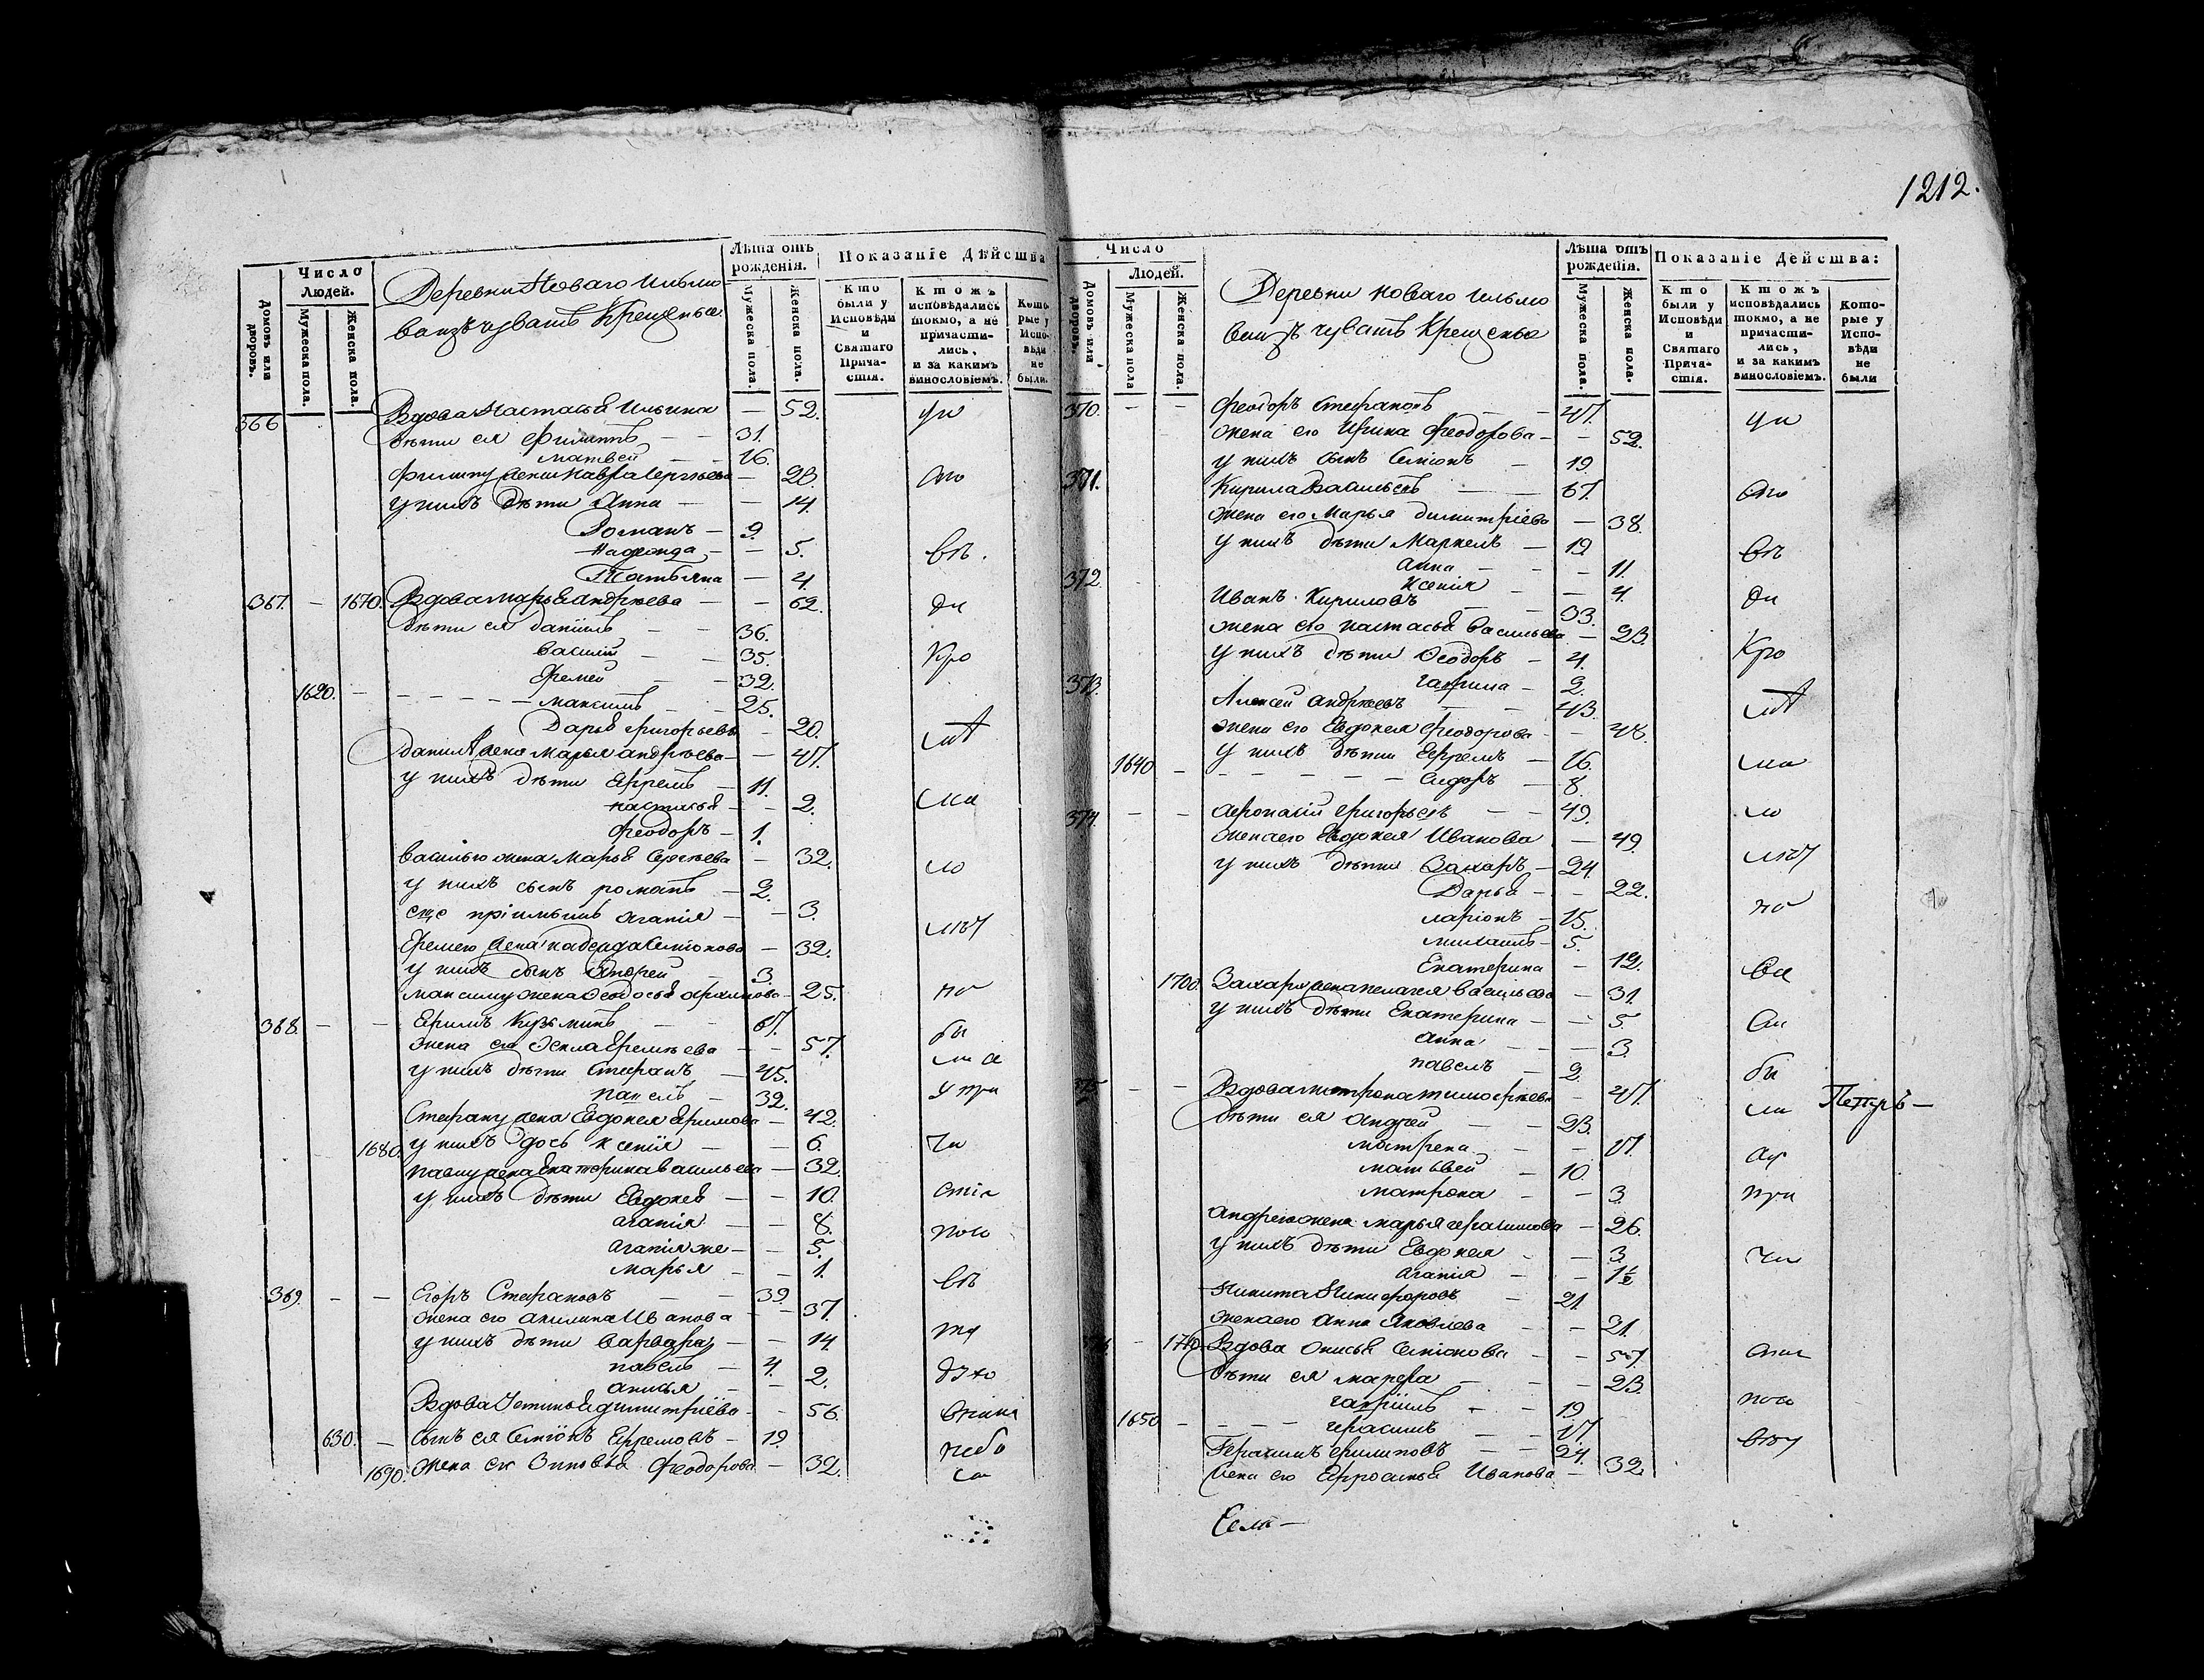 1212.
Число
Людей.
Домовъ или дворовъ.
Мужеска пола.
Женска пола.
Деревни Новаго Ильмо
ва изъ чувашъ Крещеные
Лѣта отъ рожденія.
Мужеска пола.
Женска пола.
Показаніе Дѣйства
Кто были у Исповѣди и Святаго Прича-стія.
Ктожъ исповѣдались токмо, а не причасти-лись, и за какимъ винословіемъ.
Кото-рые у Испо-вѣди не были.
366 Вдова Настасья Ильина — 52.
дѣти ея Филиппъ — — 31.
Матвей — — 16.
Филипу жена Мавра Сергѣева — 28.
у нихъ дѣти Анна — — 14.
Романъ — 9.
Надежда — — 5.
Татьяна — 4.
367. — 1670. Вдова Марья Андрѣева — — 62.
дѣти ея Данiилъ — — 36.
Василiй — — 35.
Еремей — — 32.
1620. — — — — — Максимъ — — 25.
Дарья Григорьевъ — 20.
Данилѣ жена Марья Андрѣева — — 47.
у нихъ дѣти Ефремъ — 11.
Настасья — — 2.
Феодоръ — 1.
Василью жена Марья Сергѣева — 32.
у нихъ сынъ Романъ — 2.
еще прiимышъ Агапiя — — 3.
Еремею жена Надежда Семiонова — 32.
у нихъ сынъ Андрей — 3.
Максиму жена Феодосья — 25.
368. — — Ефимъ Кузьминъ — — 67.
жена его Фекла Еремѣева — — 57.
у нихъ дѣти Стефанъ — 45.
Павелъ — 32.
Стефану жена Евдокея Ефимова — 42.
1680. у нихъ дочь Ксенiя — — 6.
Павлу жена Екатерина Васильева — 32.
у нихъ дѣти Евдокея — — 10.
Агапiя — — 8.
Агапiя же — — 5.
Марья — — 1.
369. — — Егоръ Стефановъ — — 39.
жена его Акилина Иванова — — 37.
у нихъ дѣти Варвара — — 14.
Павелъ — 4.
Анисья — — 2.
Вдова Устинья Димитрiева — — 56.
630. — сынъ ея Семiонъ Ефремовъ — 19.
1690. жена ея Зиновья Феодорова — 32.
Число
Людей.
Домовъ или дворовъ.
Мужеска пола
Женска пола.
Деревни новаго Ильмо
ва изъ чувашъ Крещеные
Лѣта отъ рожденія.
Мужеска пола.
Женска пола.
Показаніе Дейсшва:
Кто были у Исповѣди и Святаго Прича-стія.
Ктожъ исповѣдались токмо, а не причасти-лись, и за какимъ винословіемъ.
Кото-рые у Испо-вѣди не были
370. — — Феодоръ Стефановъ — 47.
жена его Ирина Феодорова — — 52.
у нихъ сынъ Семiонъ — 19.
371. Кирила Васильевъ — — 67.
жена его Марья Димитрiева — 38.
у нихъ дѣти Маркелъ — 19
Анна — — — 11.
Ксенiя — — 4.
372. Иванъ Кириловъ — — 33.
жена его Настасья Васильева — 23.
у нихъ дѣти Феодоръ — 4.
Гаврила — 2.
373. Алексей Андрѣевъ — — 43.
жена его Евдокея Феодорова — — 48.
у нихъ дѣти Ефремъ — 16.
1640 — — — — — Сидоръ — 8.
374. — — Афонасiй Григорьевъ — — 49.
жена его Евдокея Иванова — 49.
у нихъ дѣти Захаръ — 24.
Дарья — — 22.
Ларiонъ — 15.
Михаилъ — 5.
Екатерина — 12.
1700. Захару жена Пелагея Васильева — 31.
у нихъ дѣти Екатерина — — 5.
Анна — — — 3.
Павелъ — 2.
— — Вдова Матрона Тимофѣева — 47.
дѣти ея Андрей — — 23.
Матрена — — 17.
Матвей — 10.
Матрона — — 3
Андрею жена Марья Герасимова — 26.
у нихъ дѣти Евдокея — — 3.
Агапiя — — 1½
Никита Никифоровъ — 21.
жена его Анна Яковлева — — 21.
— 1710 Вдова Анисья Семiонова — — 57.
дѣти ея Марфа — — — 23.
Гаврiилъ — — 19
1650 — — — — Герасимъ — — 17
Герасимъ Филиповъ — — 24.
жена его Ефросинья Иванова — 32.
Петръ —